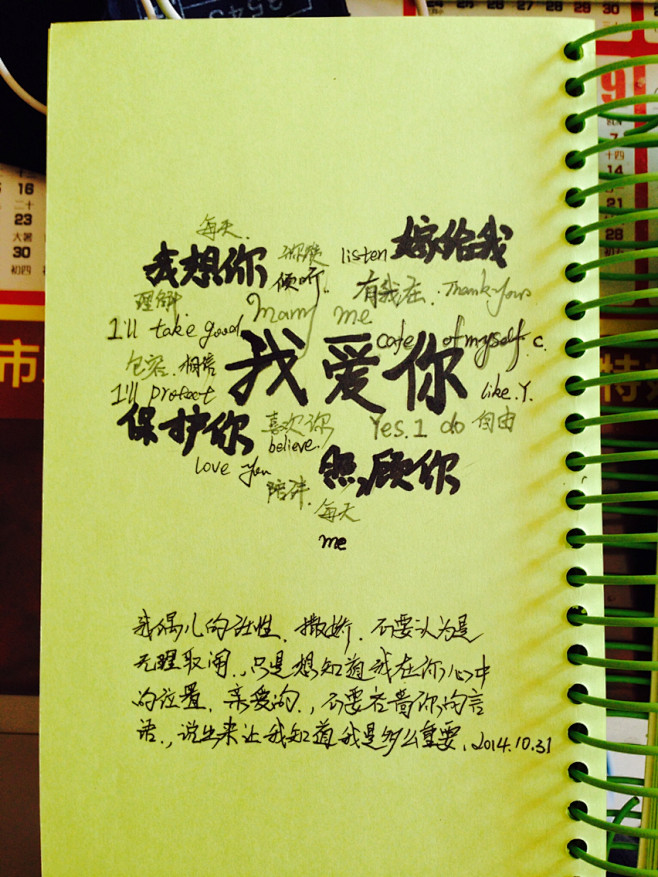 3543
每天
我想你 listen 嫁给我
倾听.
理解. 有我在. Thank you
Marry me
I'll take good care of myself. c.
包容. 相信 我爱你
I'll protect like.Y.
保护你 喜欢你 Yes. I do 自由
believe.
love you 照顾你
陪伴.
每天
me
我偶儿的任性、撒娇、不要认为是
无理取闹.,只是想知道我在你心中
的位置、亲爱的.,不要吝啬你的言
语.,说出来让我知道我是多么重要、2014.10.31
16
二十
23
大暑
30
初四
市
9
7
十四
14
特